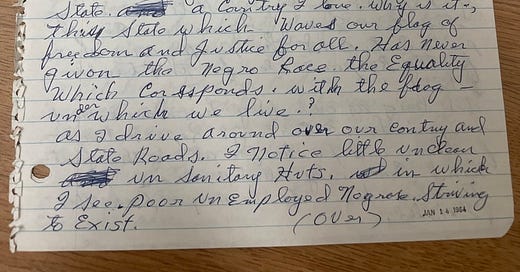 State. a Contry I love. Why is it,
this State which Waves our flag of
freedom and Justice for all. Has Never
given the Negro Race the Equality
Which Corssponds. with the flag –
under which we live.?
as I drive around over our Contry and
State Roads. I Notice little unclean
un Sanitary Huts. in which
I see. poor un Employed Negroes. Starving
to Exist.
(Over)
JAN 14 1964